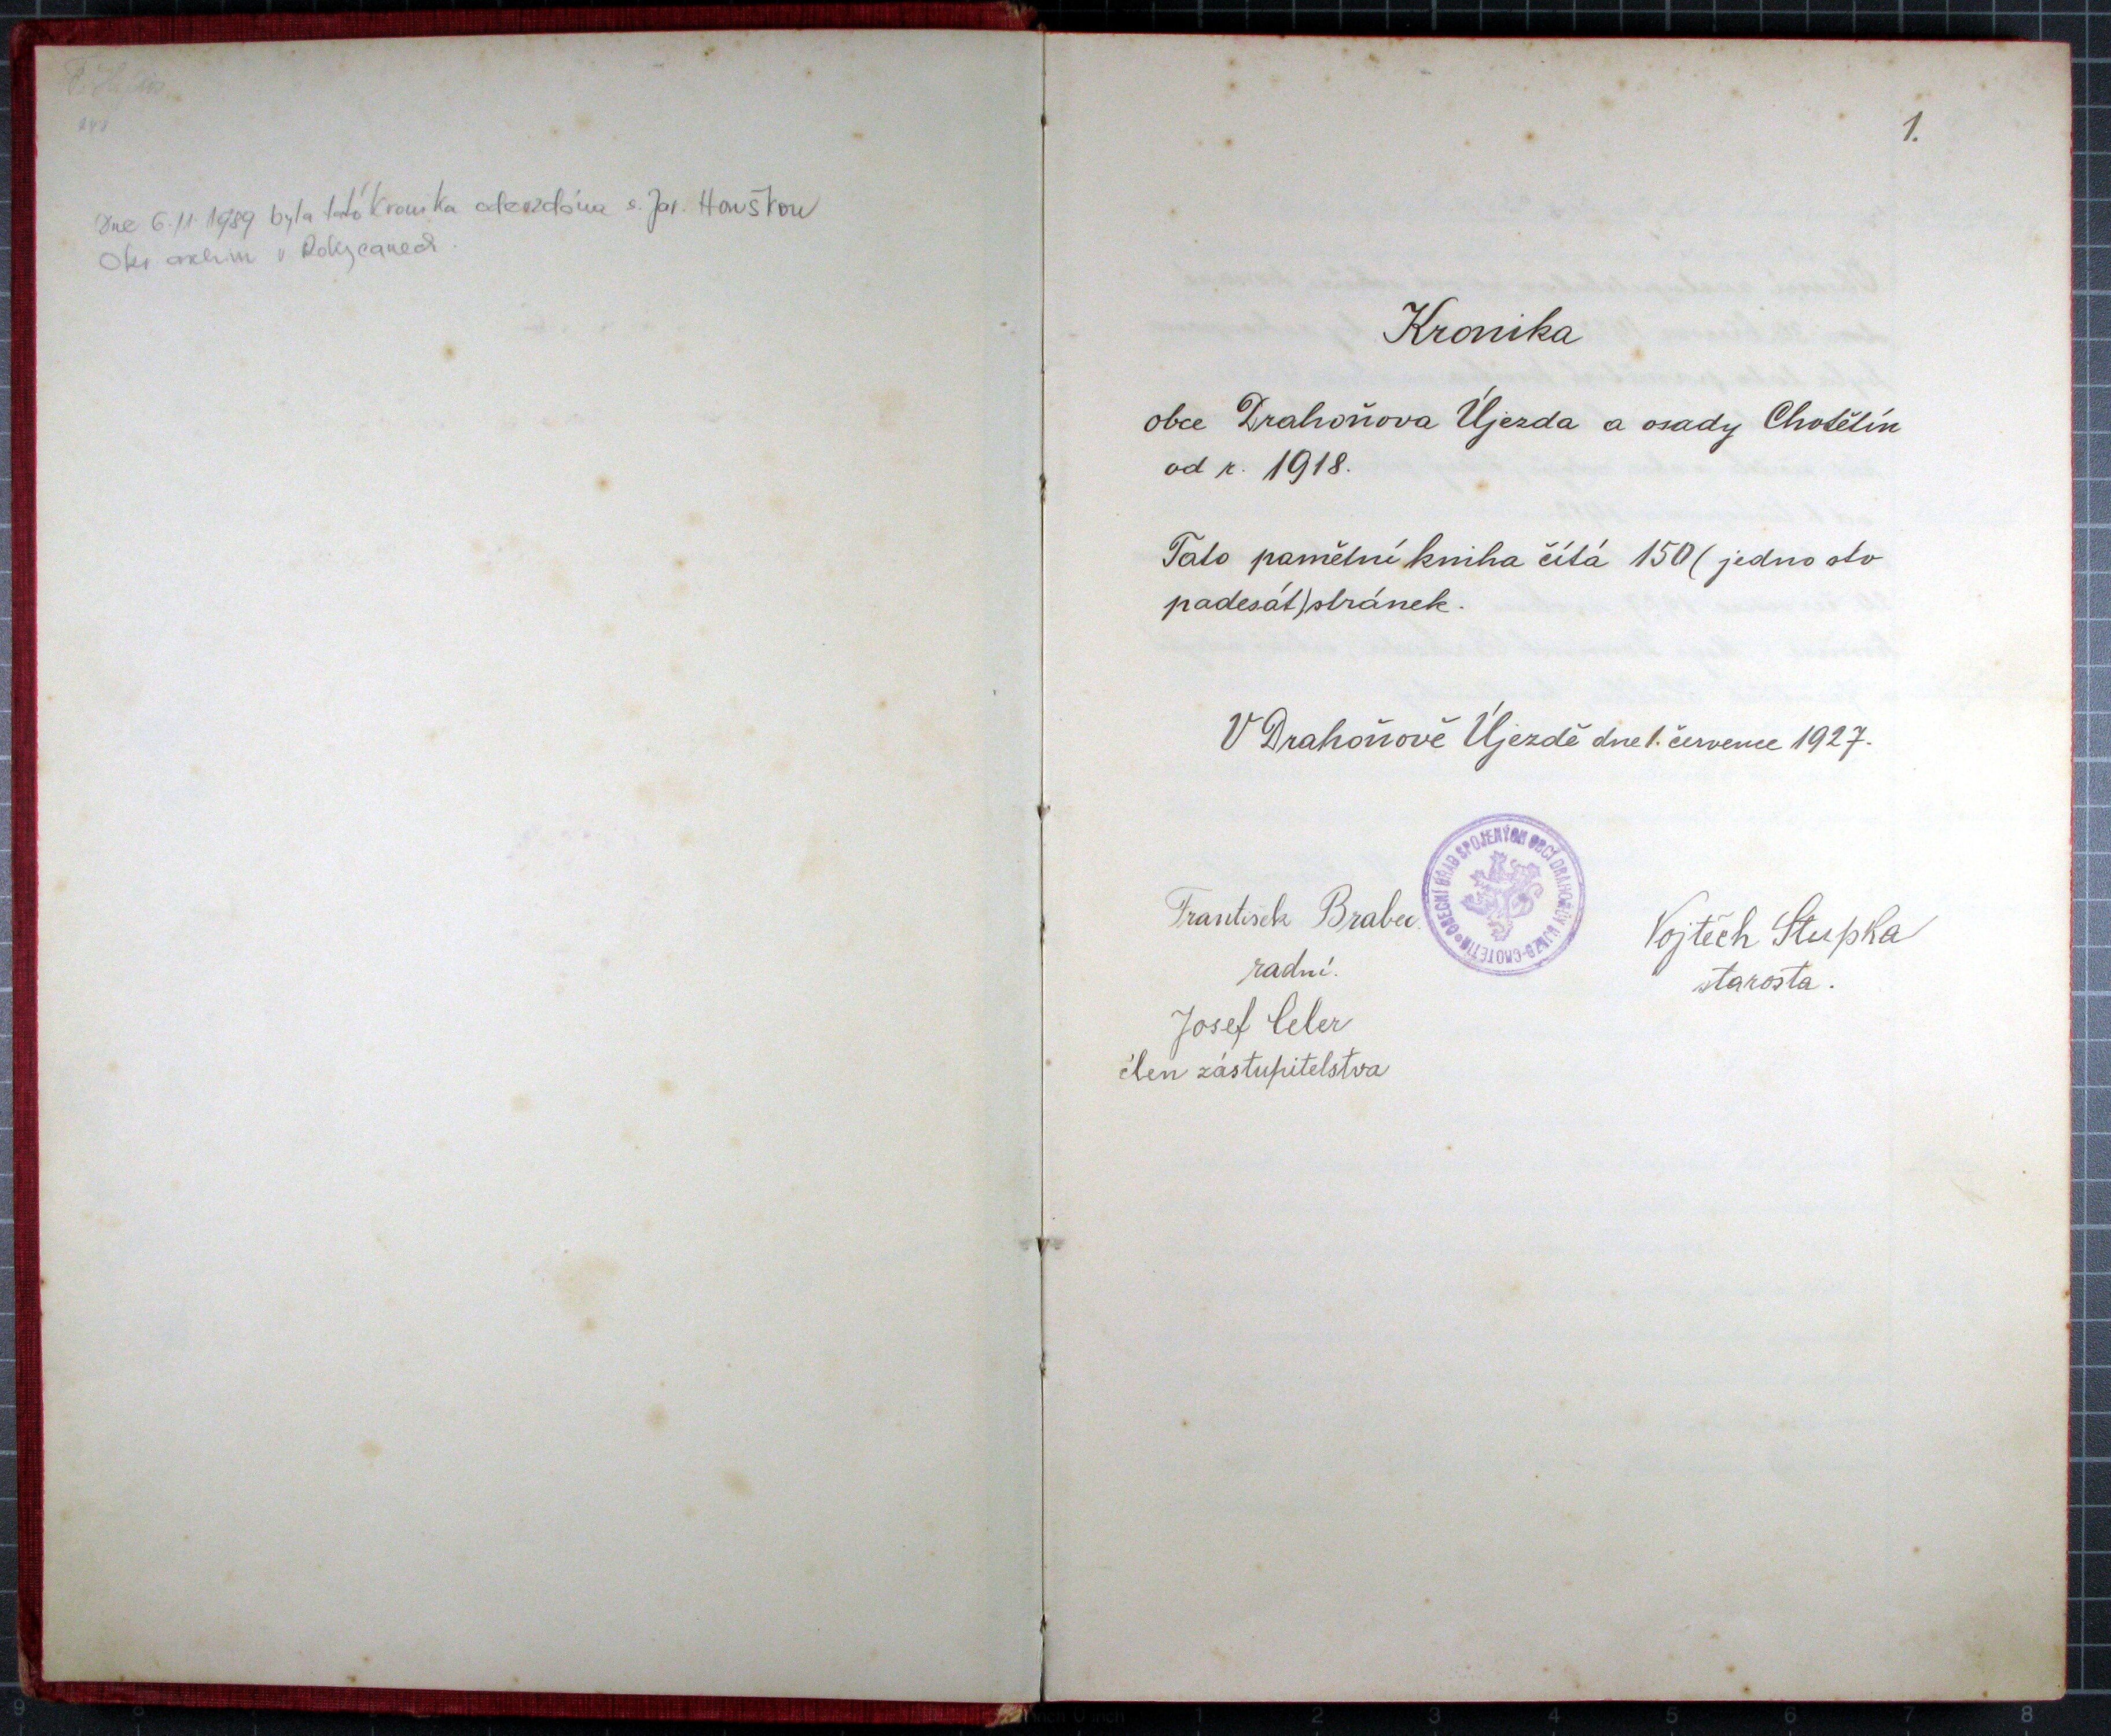 Dne 6.11.1989 byla tato kronika odevzdána s. Jar. Houškou
Okr archivu v Rokycanech.
1.
Kronika
obce Drahoňova Újezda a osady Chotětín
od r. 1918.
Tato pamětní kniha čítá 150 (jedno sto
padesát) stránek.
V Drahoňově Újezdě dne 1. července 1927.
OBECNÍ ÚŘAD SPOJENÝCH OBCÍ DRAHOŇŮV ÚJEZD-CHOTĚTÍN
František Brabec
radní.
Vojtěch Stupka
starosta.
Josef Celer
člen zástupitelstva